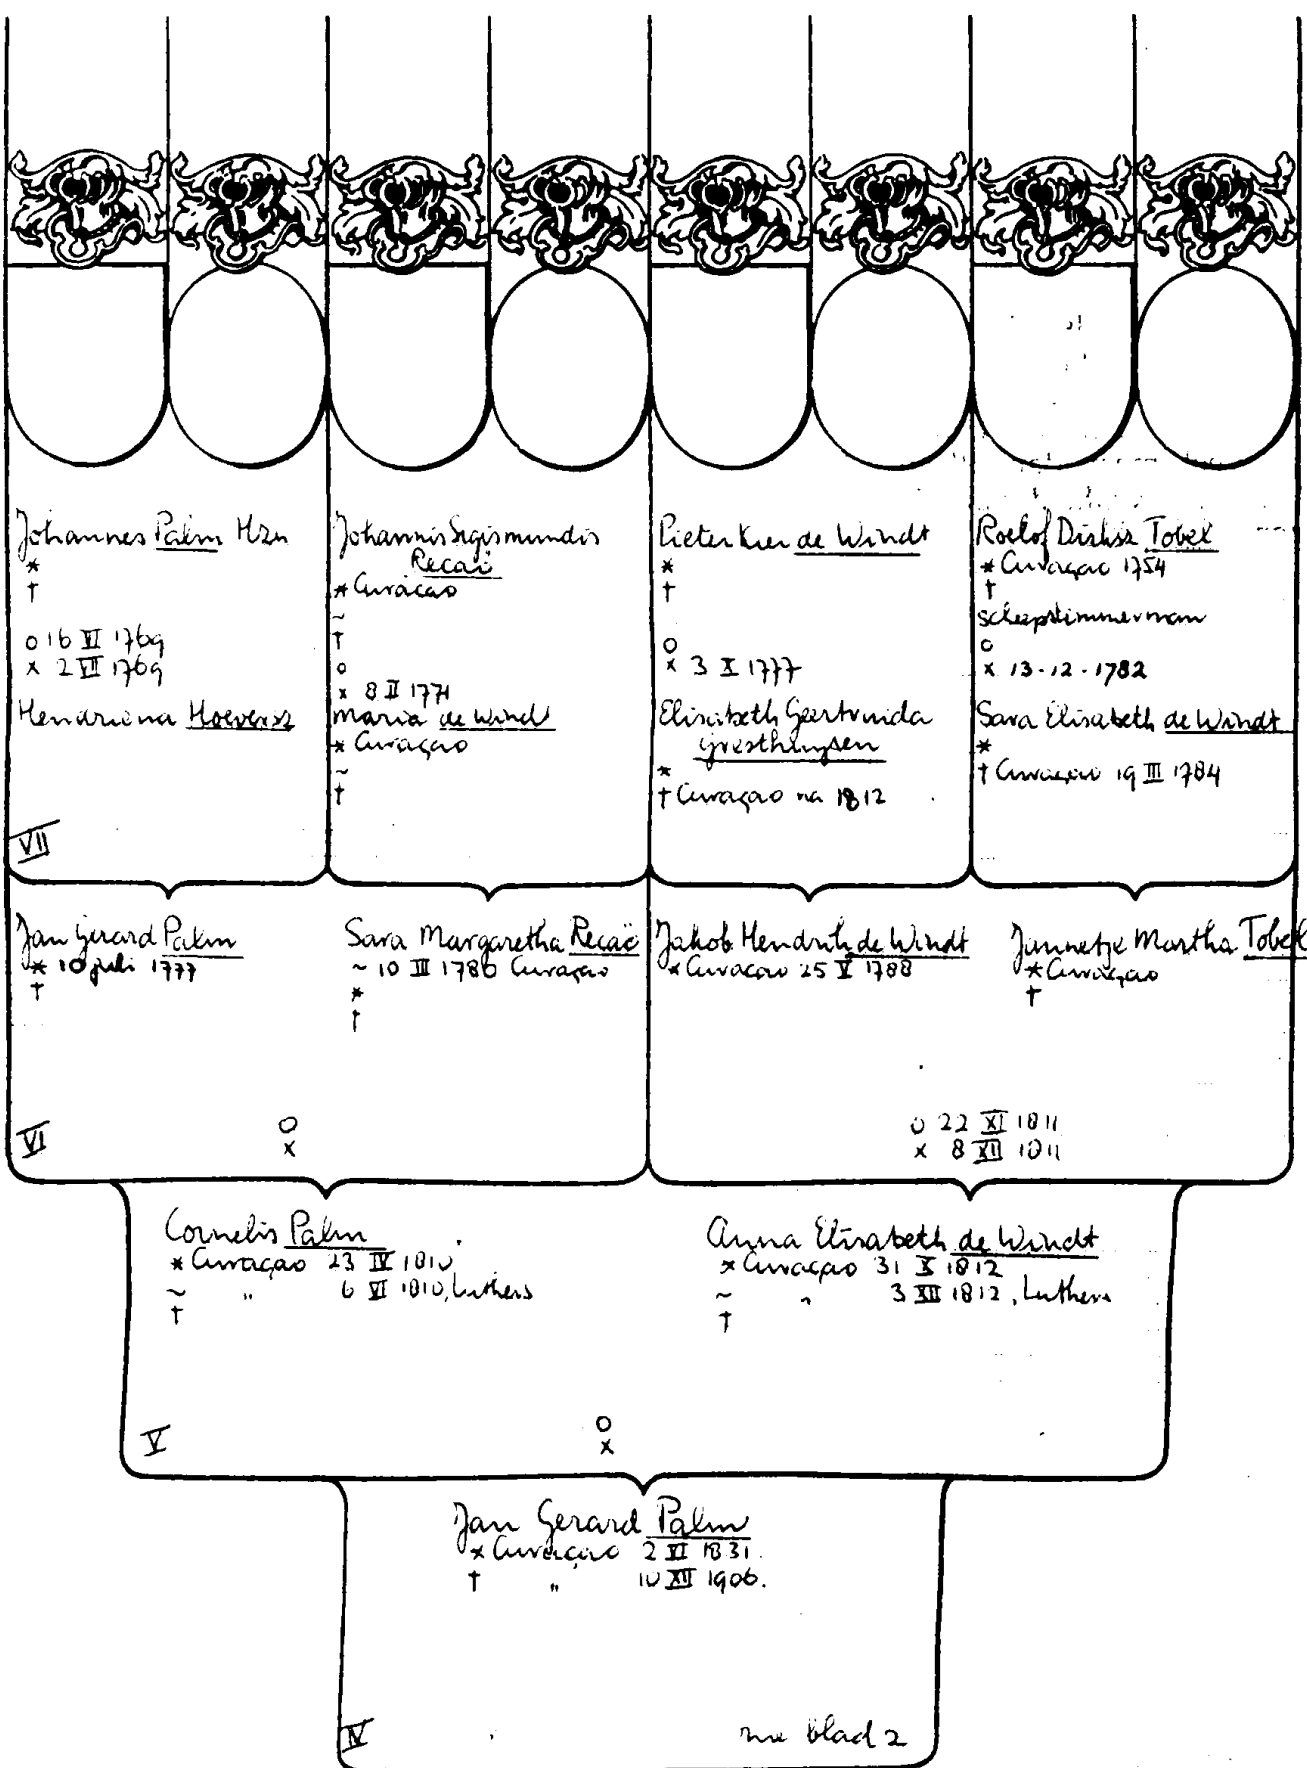 Johannes Palm Hzn
*
†
o 16 VI 1769
x 2 VII 1769
Hendriena
VII
Johannis Sigismundis
Recaï
* Curaçao
~
†
o
x 8 II 1771
Maria de Windt
* Curaçao
~
†
Pieter de Windt
*
†
o
x 3 X 1777
Elisabeth Geertruida
*
† Curaçao na 1812
Roelof Dirksz Tobel
* Curaçao 1754
†
scheepstimmerman
o
x 13-12-1782
Sara Elisabeth de Windt
*
† Curaçao 19 III 1784
Jan Gerard Palm
* 10 juli 1777
†
Sara Margaretha Recaï
~ 10 III 1786 Curaçao
*
†
o
x
VI
Jakob Hendrik de Windt
* Curaçao 25 V 1788
Jannetje Martha Tobel
* Curaçao
†
o 22 XI 1811
x 8 XII 1811
Cornelis Palm
* Curaçao 23 IV 1810
~ " 6 VI 1810, Luthers
†
Anna Elisabeth de Windt
* Curaçao 31 X 1812
~ " 3 XII 1812, Luthers
†
V
o
x
Jan Gerard Palm
* Curaçao 2 VI 1831.
† " 10 XII 1906.
IV
blad 2